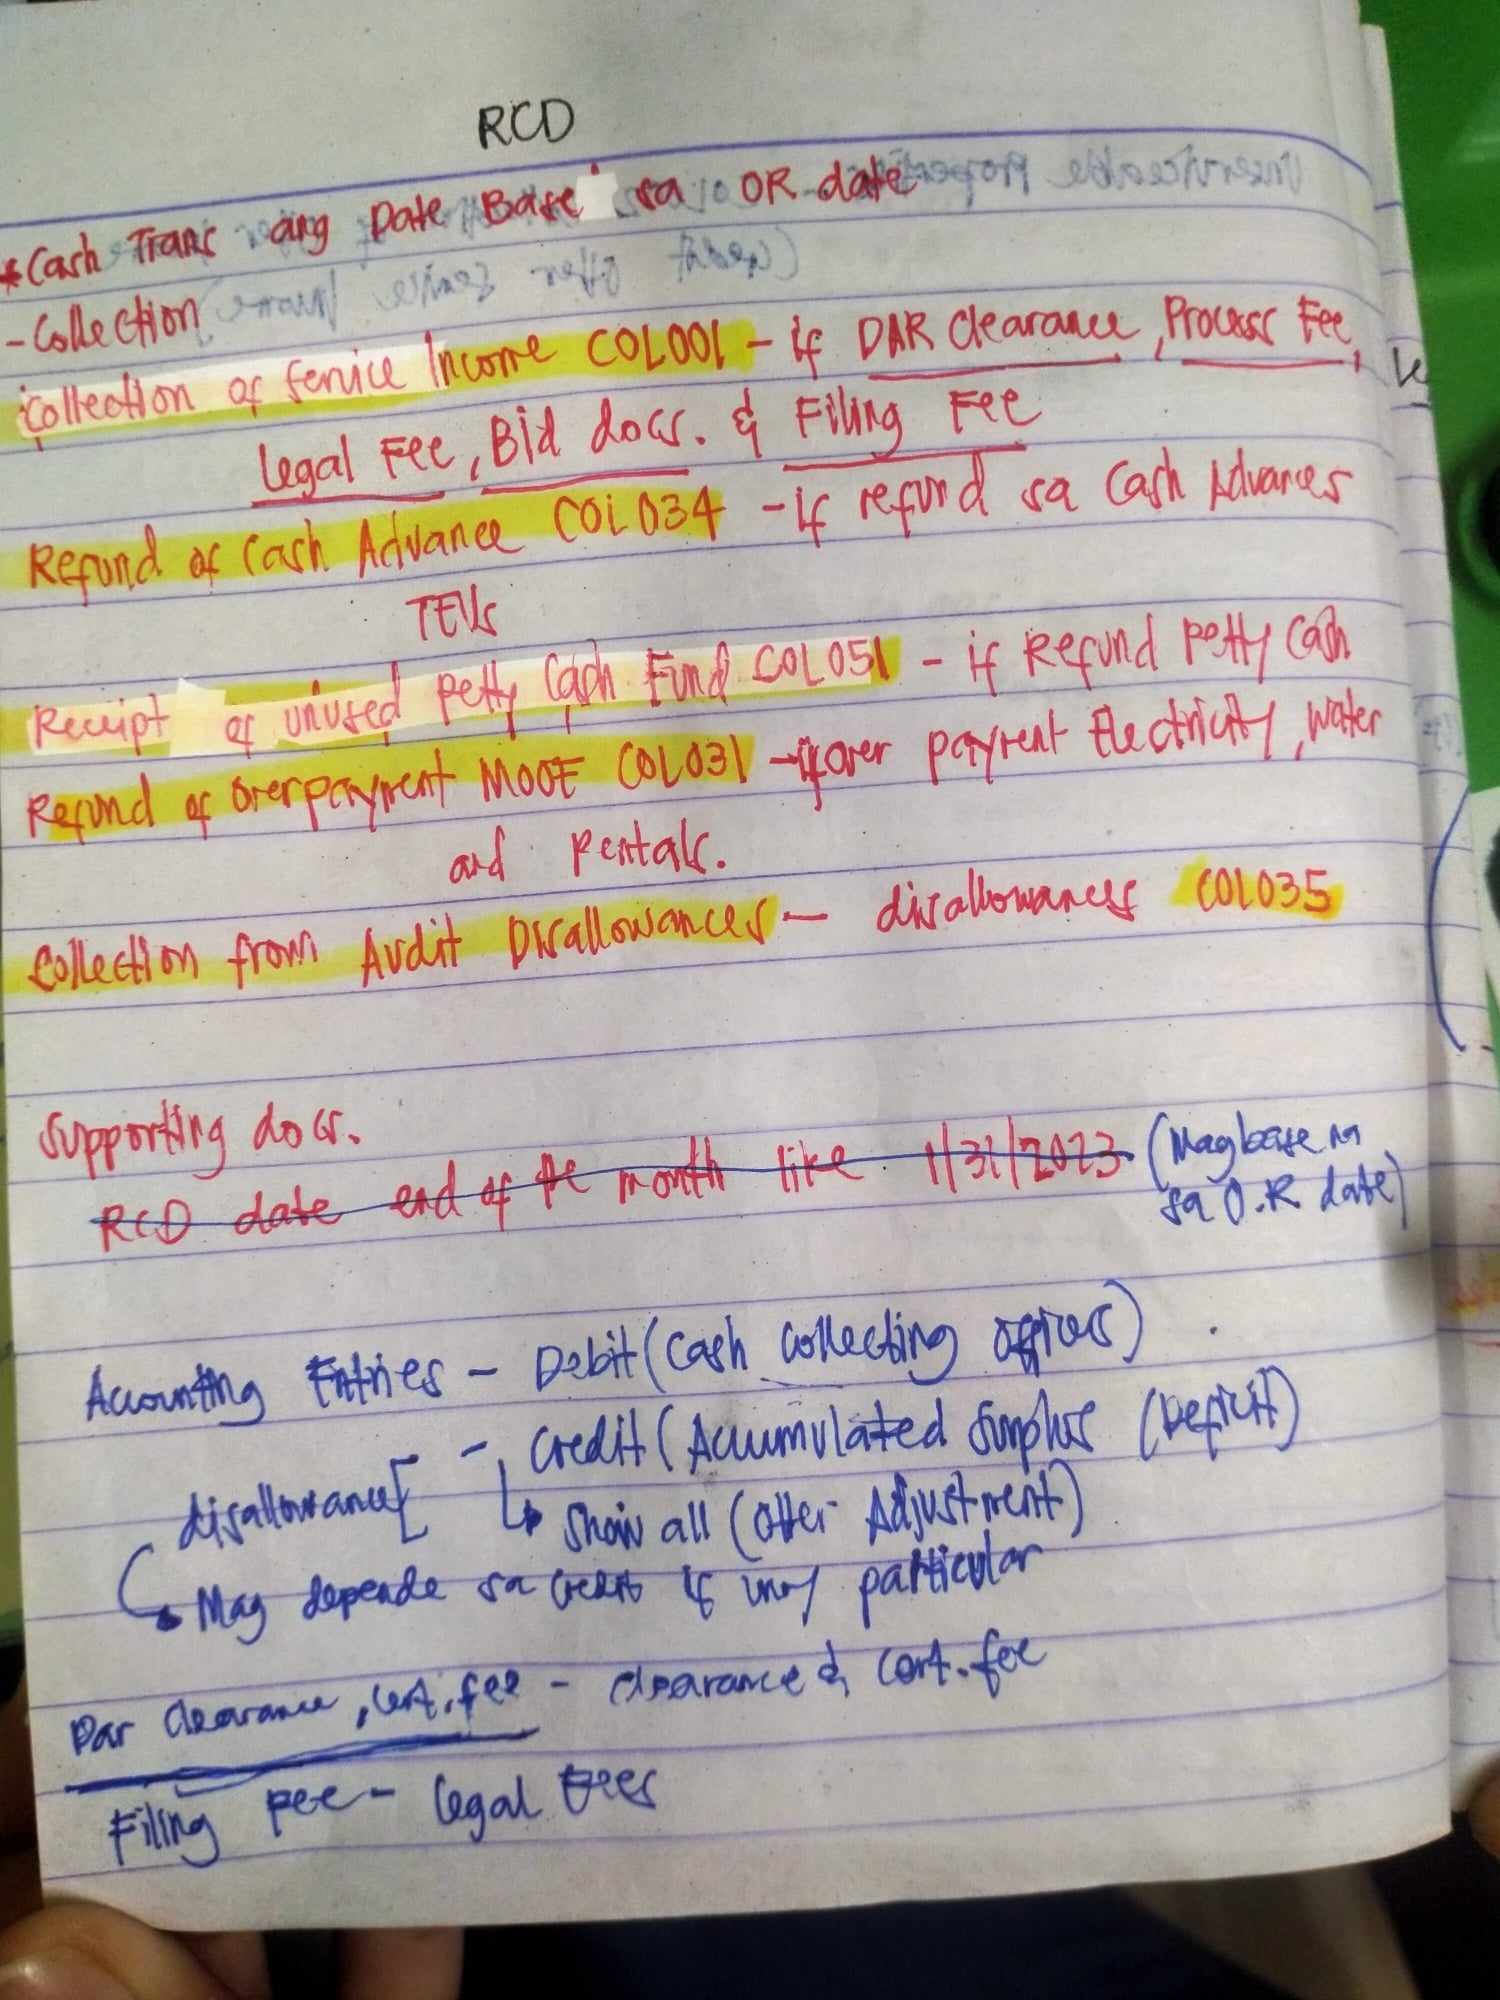 RCD
*Cash Trans ang Date Base sa OR date
- Collection
Collection of Service Income COL001 - if DAR Clearance, Process Fee,
Legal Fee, Bid docs. & Filing Fee
Refund of Cash Advance COL034 - if refund sa Cash Advances
TEVs
Receipt of unused Petty Cash Fund COL051 - if Refund Petty Cash
Refund of overpayment MOOE COL031 - if over payment Electricity, Water
and Rentals.
Collection from Audit Disallowances - disallowances COL035
Supporting docs.
RCD date end of the month like 1/31/2023. (Magbase na
sa O.R date)
Accounting Entries - Debit (Cash Collecting Officers)
disallowances [ - Credit (Accumulated Surplus (Deficit)
↳ Show all (Other Adjustment)
Mag depende sa Credit if unsay particular
Dar Clearance, Cert. fee - Clearance & Cert. fee
Filing Fee - Legal Fees